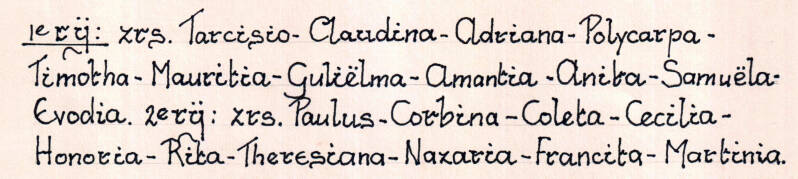 1e rij: zrs. Tarcisio - Claudina - Adriana - Polycarpa -
Timotha - Mauritia - Guliëlma - Amantia - Anita - Samuëla -
Evodia. 2e rij: zrs. Paulus - Corbina - Coleta - Cecilia -
Honoria - Rita - Theresiana - Nazaria - Francita - Martinia.